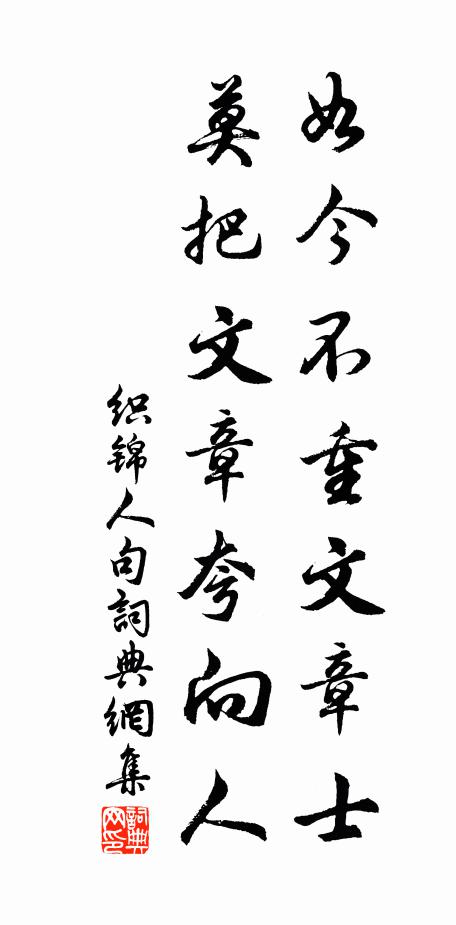 如今不重文章士
莫把文章夸向人
织锦人句詞典網集
詞典
网印